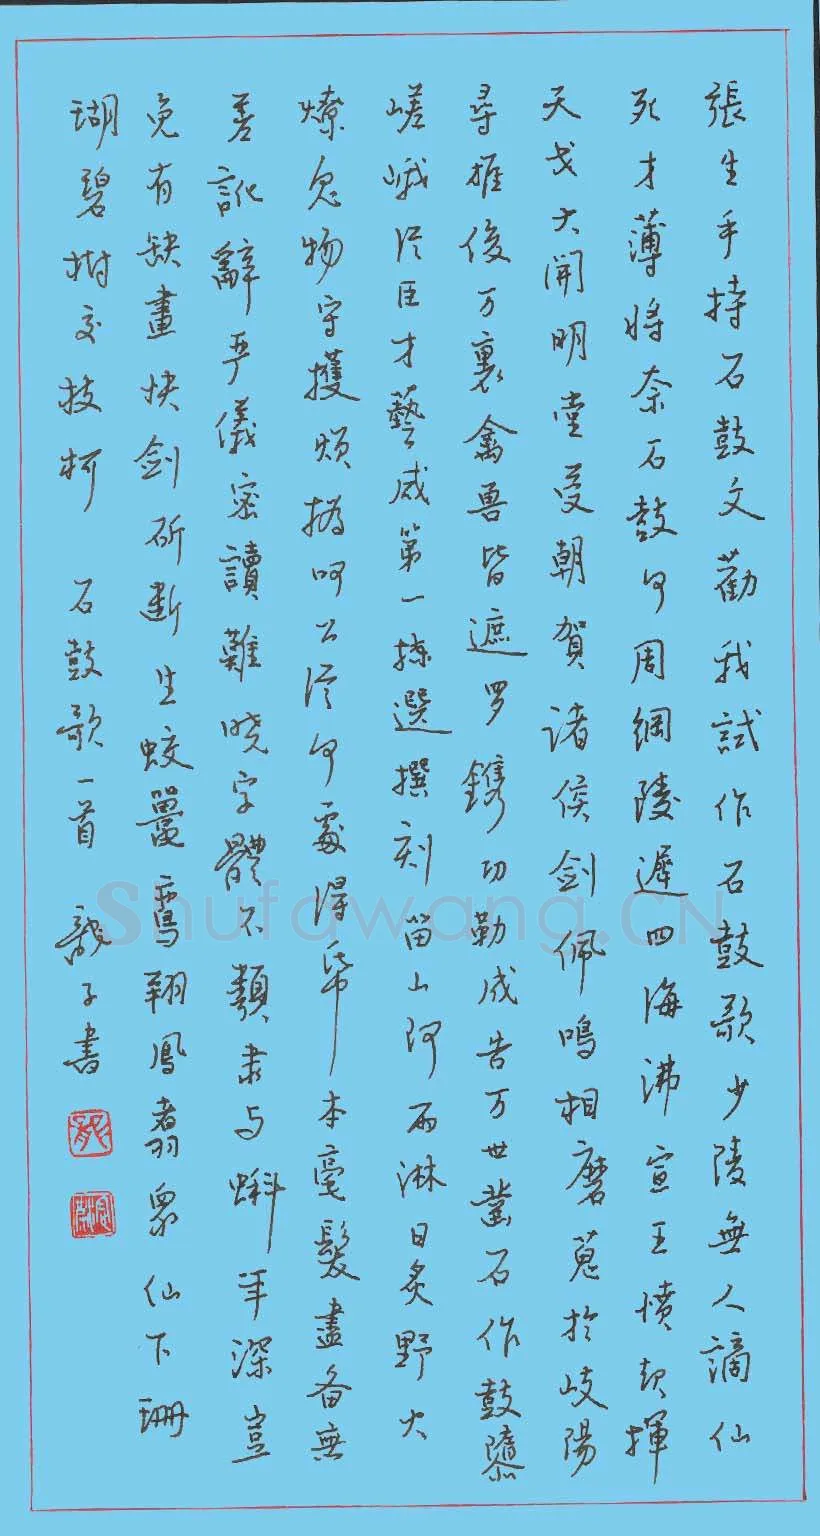 張生手持石鼓文勸我試作石鼓歌少陵無人謫仙
死才薄將奈石鼓何周綱陵遲四海沸宣王憤起揮
天戈大開明堂受朝賀诸侯剑佩鳴相磨蒐於岐陽
尋雄俊万裏禽兽皆遮罗鐫功勒成告万世鑿石作鼓隳
嵯峨從臣才藝咸第一揀選撰刻留山阿雨淋日炙野火
燎鬼物守擭煩撝呵公從何處得紙本毫髮盡备無
差訛辭严儀密讀難晓字體不類隶与蝌年深豈
免有缺畫快剑斫斷生蛟鼉鸞翔鳳翥眾仙下珊
瑚碧樹交枝柯 石鼓歌一首 子書
Shufawang.CN